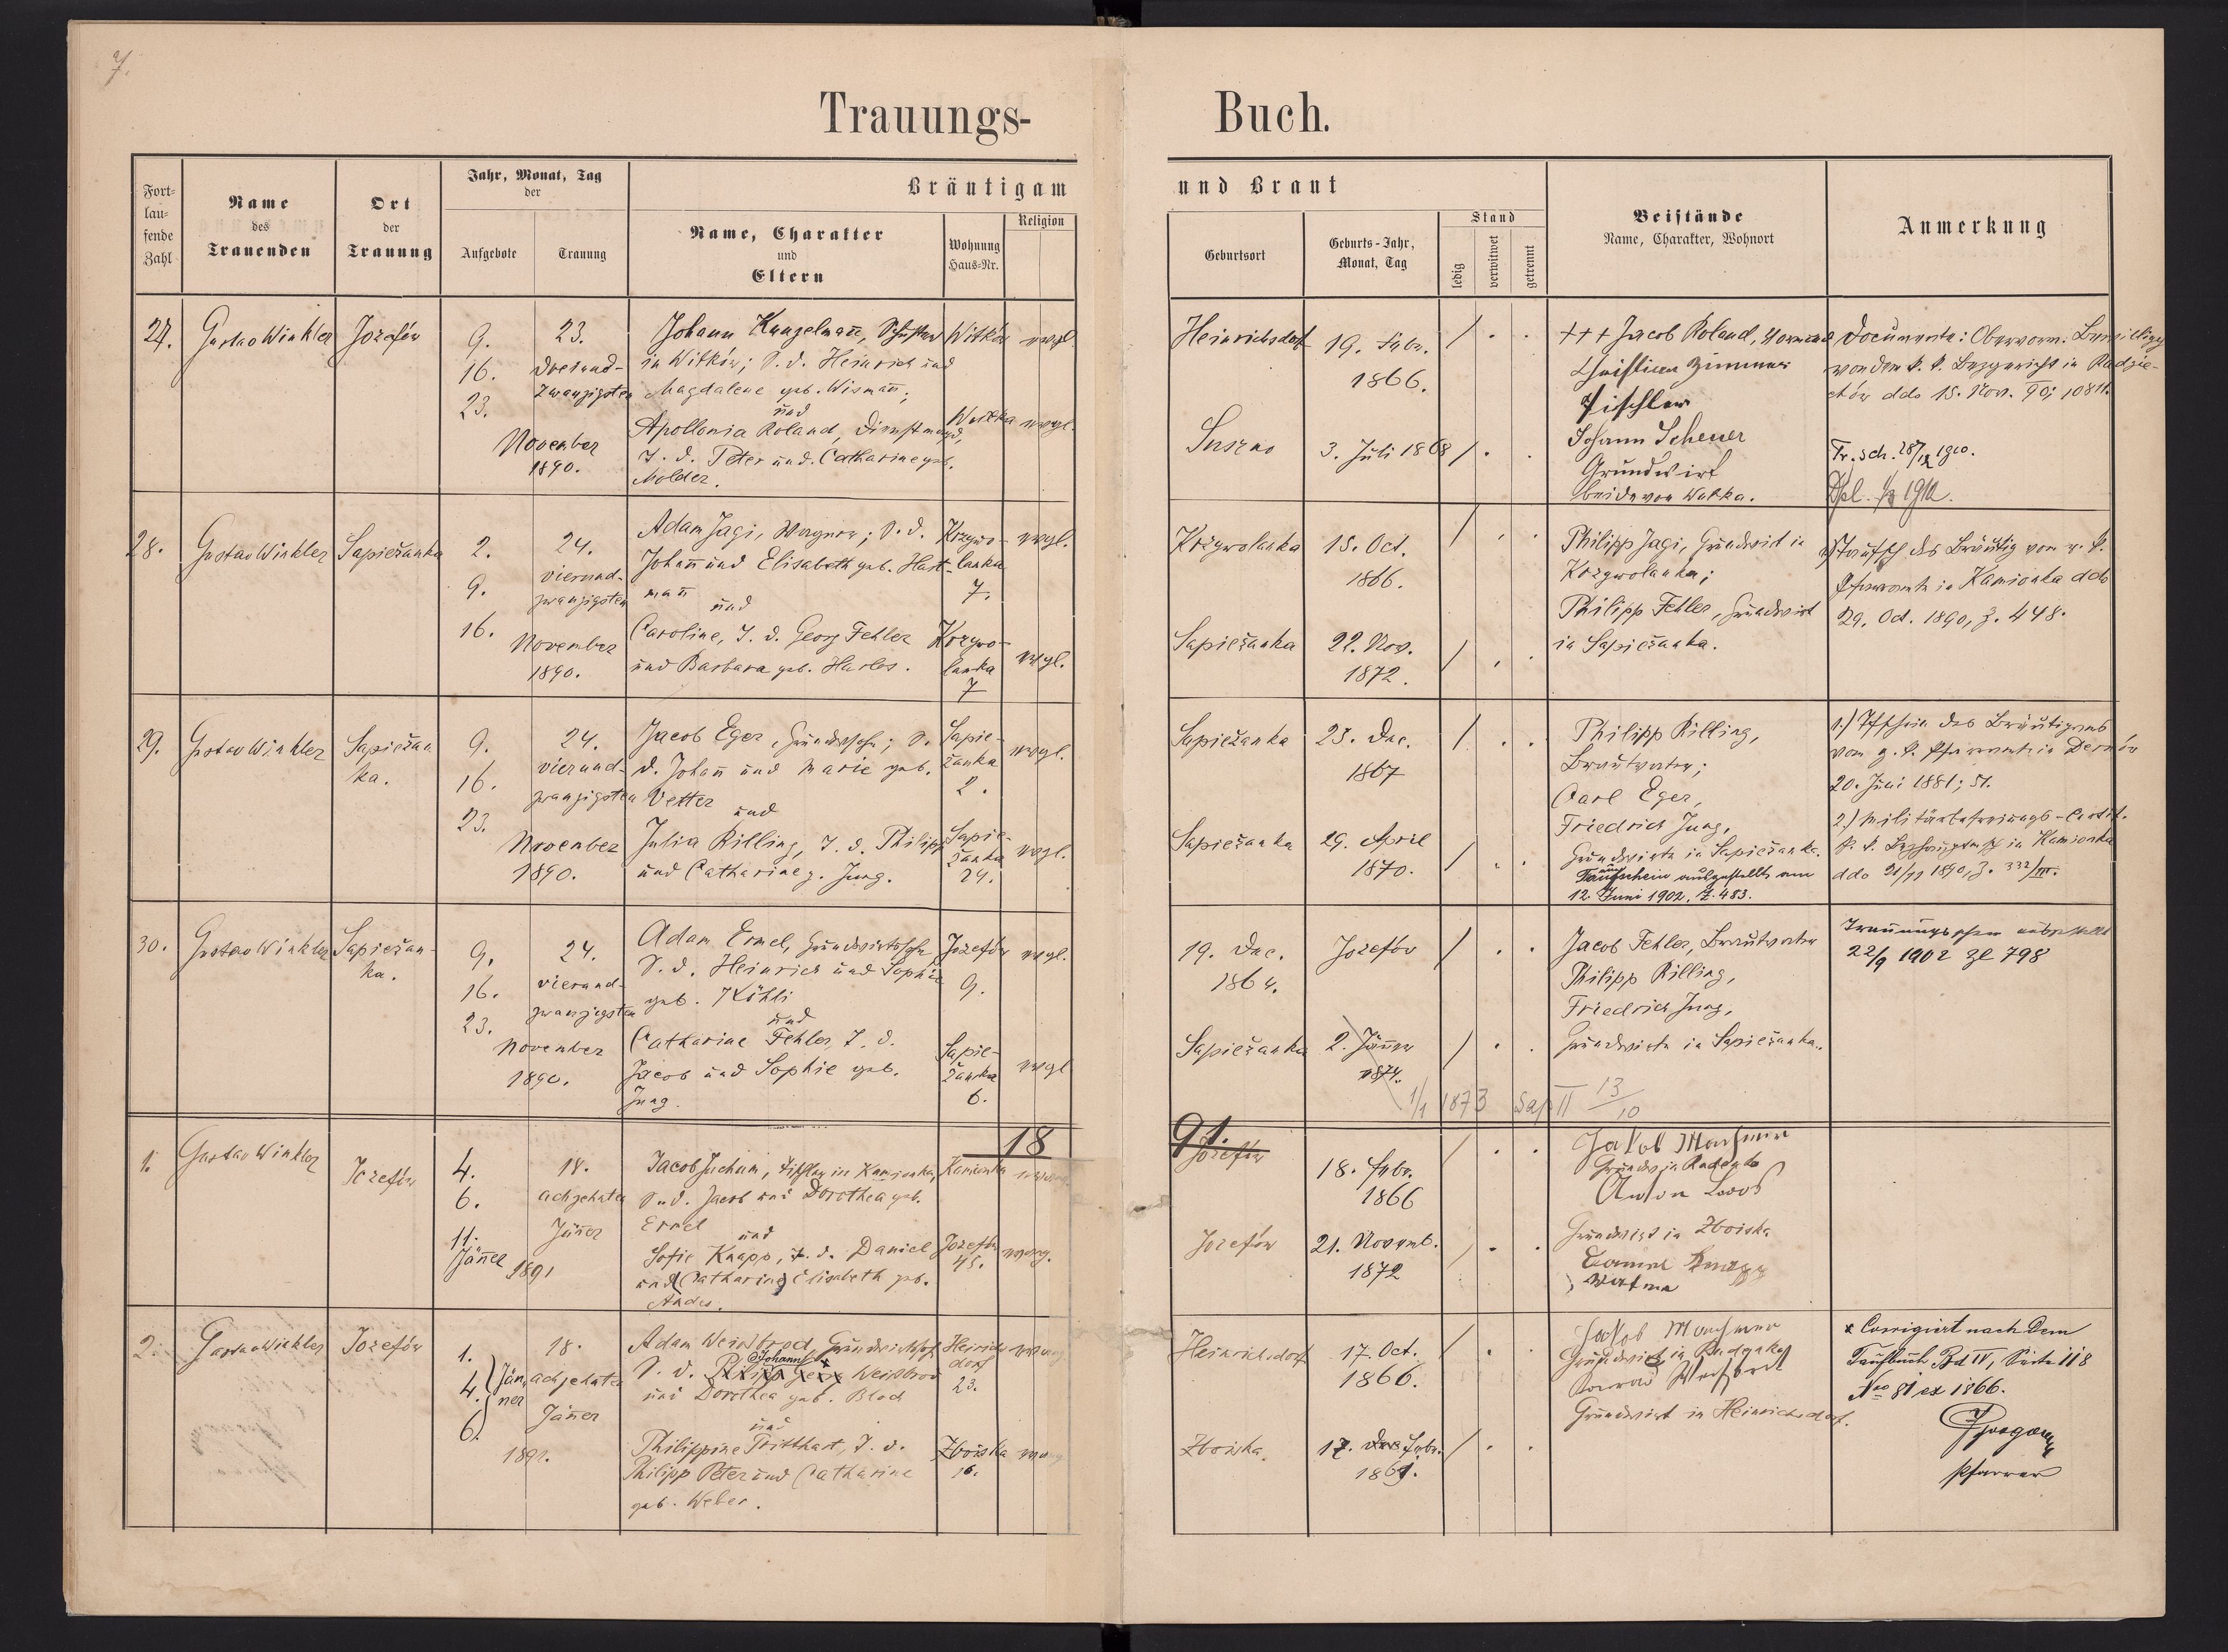 7.
Trauungs-Buch.
Fortlaufende Zahl
Name des Trauenden
Ort der Trauung
Jahr, Monat, Tag der
Aufgebote
Trauung
Bräutigam und Braut
Name, Charakter und Eltern
Wohnung Haus-Nr.
Religion
Geburtsort
Geburts-Jahr, Monat, Tag
Stand
ledig
verwitwet
getrennt
Beistände
Name, Charakter, Wohnort
Anmerkung
27. Gustav Winkler Jozefów
9. 16. 23.
23. dreiund-
zwanzigsten
November
1890.
Johann Kungelmann, Schuster
in Witków; S. d. Heinrich und
Magdalene geb. Wismann;
und
Apollonia Roland, Dienstmagd,
T. d. Peter und Catharine geb.
Molder.
Witków evgl.
Wolka evgl.
Heinrichsdorf 19. Febr.
1866.
Suszno 3. Juli 1868
+++ Jacob Roland, Vormund
Christian Zimmer
Tischler
Johann Scheuer
Grundwirt
beide von Wolka.
Documente: Obervorm. Bewilligg
von dem k. k. Bezgericht in Radzie-
chów ddo 15. Nov. 90; 10811.
Tr. sch. 28/12 1910.
28. Gustav Winkler Sapieżanka
2. 9. 16.
24. vierund-
zwanzigsten
November
1890.
Adam Jagi, Wagner; S. d.
Johann und Elisabeth geb. Hart-
mann
und
Caroline, T. d. Georg Fehler
und Barbara geb. Harlos.
Krzywo-
lanka
7.
evgl.
Krzywo-
lanka
7
evgl.
Krzywolanka 15. Oct.
1866.
Sapieżanka 22. Nov.
1872.
Philipp Jagi, Grundwirt in
Krzywolanka;
Philipp Fehler, Grundwirt
in Sapieżanka.
Taufsch. des Bräutig von e. k.
Pfarramte in Kamionka ddo
29. Oct. 1890, Z. 448.
29. Gustav Winkler Sapiežan
ka.
9. 16. 23.
24. vierund-
zwanzigsten
November
1890.
Jacob Eger, Grundwsohn; S.
d. Johann und Marie geb.
Vetter
und
Julia Rilling, T. d. Philipp
und Catharine g. Jung.
Sapie-
żanka
2.
evgl.
Sapie-
żanka
24.
evgl.
Sapieżanka 23. Dec.
1867
Sapieżanka 29. April
1870.
Philipp Rilling,
Brautvater;
Carl Eger,
Friedrich Jung,
Grundwirte in Sapieżanka.
Taufschein ausgestellt am
12. Juni 1902, Z. 483.
1.) Tfschein des Bräutigams
vom g. k. Pfarramte in Dernów
20. Juni 1881; 51.
2.) Militärbefreiungs-Certif.
k. k. Bezhauptmsch in Kamionka
ddo 21/11 1890, Z. 332/III.
30. Gustav Winkler Sapieżan-
ka.
9. 16. 23.
24. vierund-
zwanzigsten
November
1890.
Adam Ermel, Grundwirtssohn
S. d. Heinrich und Sophie
geb. Köhli
und
Catharine Fehler, T. d.
Jacob und Sophie geb.
Jung.
Jozefów
9.
evgl.
Sapie-
żanka
6.
evgl
19. Dec.
1864.
Jozefów
Sapieżanka 2. Jänner
1874.
1/1 1873 Sap II 13/10
Jacob Fehler, Brautvater
Philipp Rilling,
Friedrich Jung,
Grundwirte in Sapieżanka.
Trauungsschein ausgestellt
22/9 1902 Zl 798
1891.
1. Gustav Winkler Jozefów
4. 6. 11.
Jänner
18. achzehnten
Jänner
1891
Jacob Juchum, Tischler in Kamionka,
S. d. Jacob und Dorothea geb.
Ermel
und
Sofie Knapp, T. d. Daniel
und Catharine Elisabeth geb.
Andes.
Kamionka
Jozefów
45.
evang.
Jozefów 18. Febr.
1866
Jozefów 21. Novemb.
1872
Jakob Manz
Anton Loos
Grundwirt in Zboiska
Daniel Knapp
Vater
2. Gustav Winkler Jozefów
1. 4. 6. Jän-
ner
18. achzehnten
Jänner
1891.
Adam Weissbrod, Grundwirtssohn
S. d. Philipp Georg Johann x Weissbrod
und Dorothea geb. Bloch
und
Philippine Tritthart, T. d.
Philipp Peter und Catharine
geb. Weber.
Heinrichs
dorf
23.
evang
Zboiska
16.
Heinrichsdorf 17. Oct.
1866.
Zboiska. 17. Dec Febr.
1869.
Grundwirt in
Konrad Weissbrod
Grundwirt in Heinrichsdorf.
x Corrigiert nach dem
Taufbuch Bd IV, Seite 118
Nro 81 ex 1866.
Pfarrer